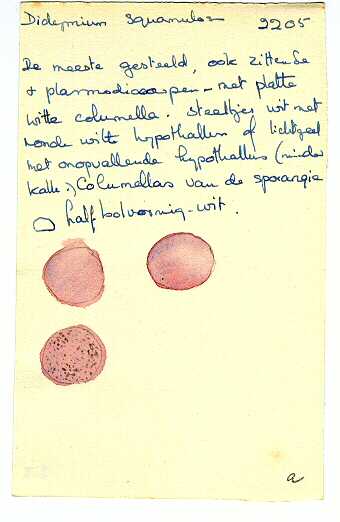 Didymium Squamulosum 2205
De meeste gesteeld, ook zittende
+ plasmodiocarpen - met platte
witte columella. Steeltjes wit met
ronde witte hypothallus of lichtgeel
met onopvallende hypothallus (minder
kalk.) Columellas van de sporangie
half bolvormig - wit.
a